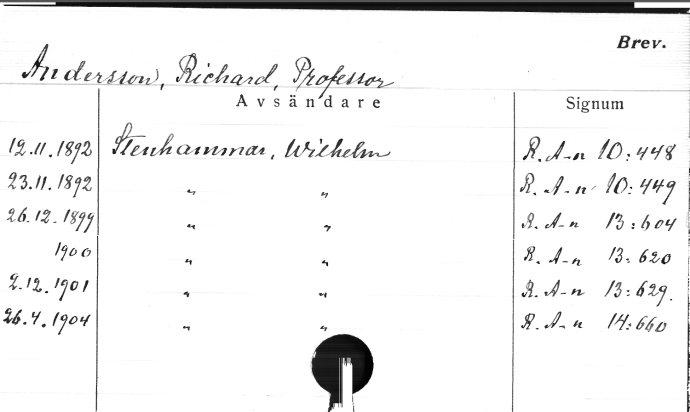 Brev.
Andersson, Richard, Professor
Avsändare Signum
12.11.1892 Stenhammar, Wilhelm R. A-n 10:448
23.11.1892 " " R. A-n 10:449
26.12.1899 " " R. A-n 13:604
1900 " " R. A-n 13:620
2.12.1901 " " R. A-n 13:629.
26.4.1904 " " R. A-n 14:660